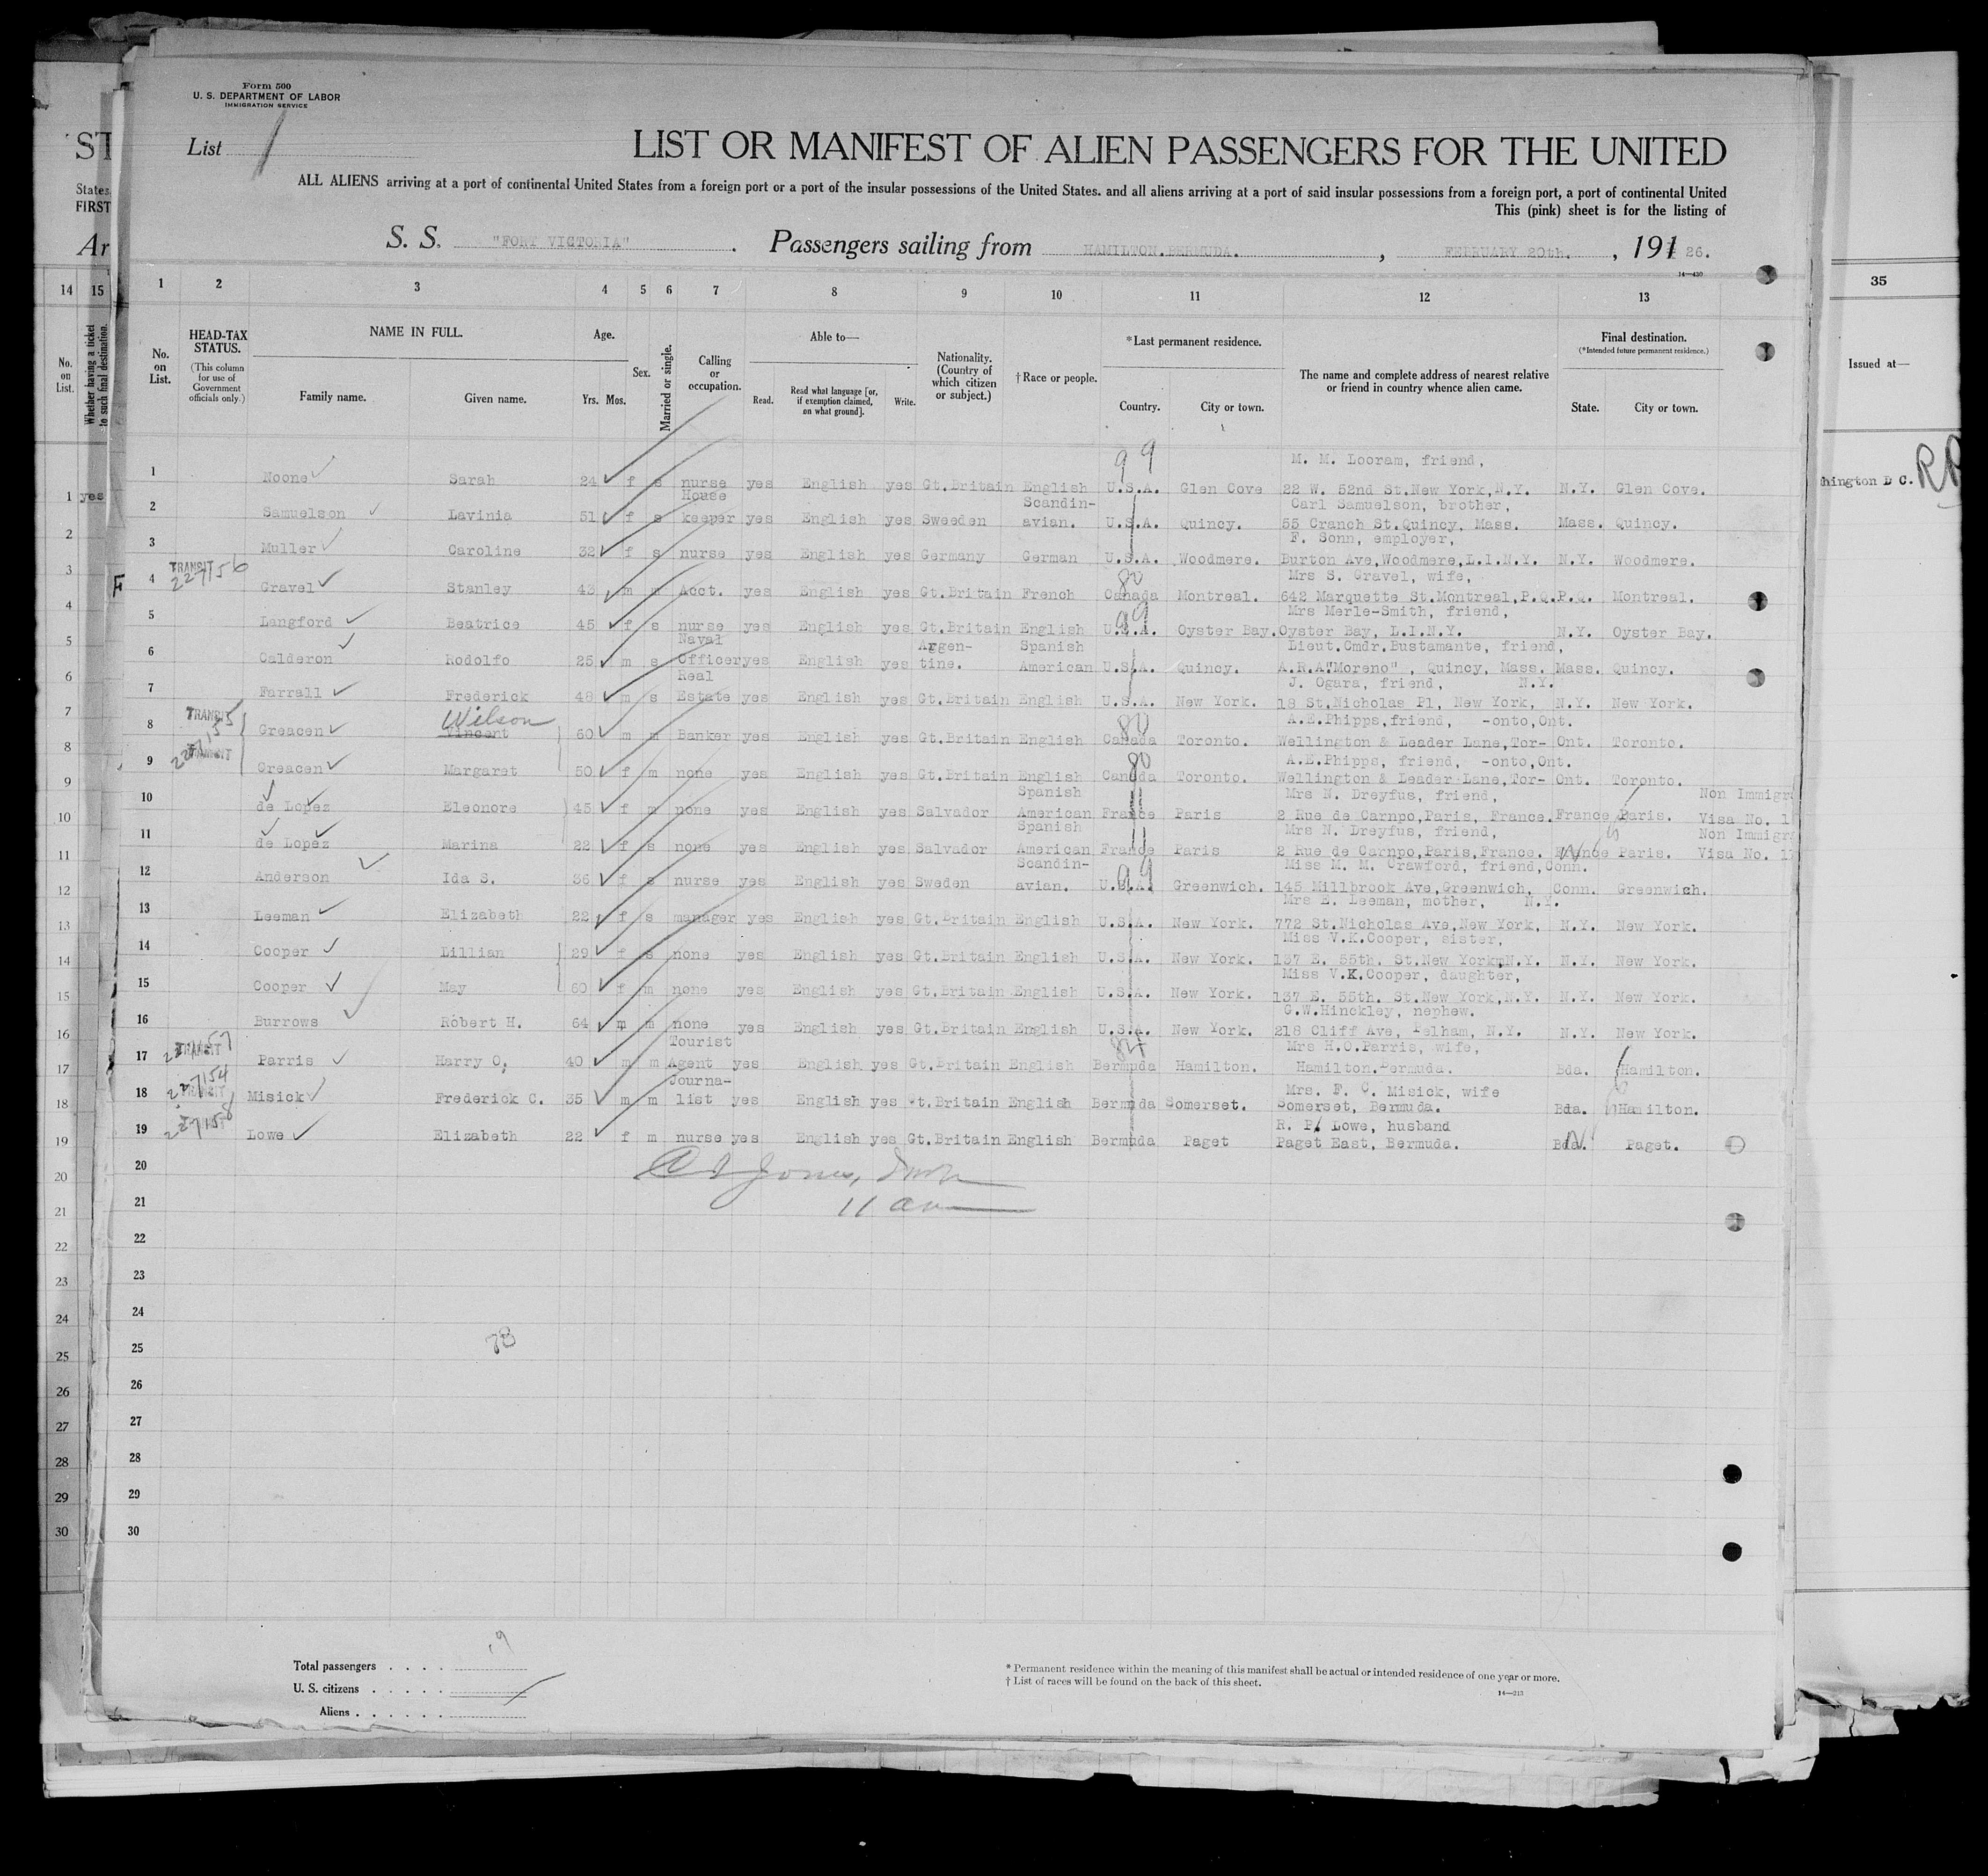 Form 500
U. S. DEPARTMENT OF LABOR
IMMIGRATION SERVICE
List 1
LIST OR MANIFEST OF ALIEN PASSENGERS FOR THE UNITED
ALL ALIENS arriving at a port of continental United States from a foreign port or a port of the insular possessions of the United States. and all aliens arriving at a port of said insular possessions from a foreign port, a port of continental United
This (pink) sheet is for the listing of
S. S. "FORT VICTORIA" . Passengers sailing from HAMILTON.BERMUDA. , FEBRUARY 20th. , 191 26.
14—430
1 2 3 4 5 6 7 8 9 10 11 12 13
No. on List.
HEAD-TAX STATUS.
(This column for use of Government officials only.)
NAME IN FULL.
Family name. Given name.
Age.
Yrs. Mos.
Sex.
Married or single.
Calling or occupation.
Able to—
Read. Read what language [or, if exemption claimed, on what ground]. Write.
Nationality. (Country of which citizen or subject.)
† Race or people.
*Last permanent residence.
Country. City or town.
The name and complete address of nearest relative or friend in country whence alien came.
Final destination.
(*Intended future permanent residence.)
State. City or town.
99 M. M. Looram, friend,
1 Noone Sarah 24 f s nurse yes English yes Gt.Britain English U.S.A. Glen Cove 22 W. 52nd St.New York,N.Y. N.Y. Glen Cove.
House Scandin- Carl Samuelson, brother,
2 Samuelson Lavinia 51 f s keeper yes English yes Sweeden avian. U.S.A. Quincy. 55 Cranch St.Quincy, Mass. Mass. Quincy.
F. Sonn, employer,
3 Muller Caroline 32 f s nurse yes English yes Germany German U.S.A. Woodmere. Burton Ave,Woodmere,L.I.N.Y. N.Y. Woodmere.
TRANSIT 227156 80 Mrs S. Gravel, wife,
F 4 Gravel Stanley 43 m m Acct. yes English yes Gt.Britain French Canada Montreal. 642 Marquette St.Montreal,P.Q. P.Q. Montreal.
99 Mrs Merle-Smith, friend,
5 Langford Beatrice 45 f s nurse yes English yes Gt.Britain English U.S.A. Oyster Bay. Oyster Bay, L.I.N.Y. N.Y. Oyster Bay.
Naval Argen- Spanish Lieut.Cmdr.Bustamante, friend,
6 Calderon Rodolfo 25 m s Officer yes English yes tine. American U.S.A. Quincy. A.R.A"Moreno" , Quincy, Mass. Mass. Quincy.
Real J. Ogara, friend, N.Y.
7 Farrall Frederick 48 m s Estate yes English yes Gt.Britain English U.S.A. New York. 18 St.Nicholas Pl, New York, N.Y. New York.
TRANSIT 227155 Wilson 80 A.E.Phipps,friend, -onto,Ont.
8 Greacen Vincent 60 m m Banker yes English yes Gt.Britain English Canada Toronto. Wellington & Leader Lane,Tor- Ont. Toronto.
TRANSIT 80 A.E.Phipps, friend, -onto,Ont.
9 Greacen Margaret 50 f m none yes English yes Gt.Britain English Canada Toronto. Wellington & Leader Lane,Tor- Ont. Toronto.
Spanish Mrs N. Dreyfus, friend, Non Immigr
10 de Lopez Eleonore 45 f m none yes English yes Salvador American France Paris 2 Rue de Carnpo,Paris, France. France Paris. Visa No. 1
Spanish Mrs N. Dreyfus, friend, Non Immigr
11 de Lopez Marina 22 f s none yes English yes Salvador American France Paris 2 Rue de Carnpo,Paris,France. France Paris. Visa No. 1
Scandin- Miss M. M. Crawford, friend,Conn.
12 Anderson Ida S. 36 f s nurse yes English yes Sweden avian. U.S.A. 99 Greenwich. 145 Millbrook Ave,Greenwich, Conn. Greenwich.
Mrs E. Leeman, mother, N.Y.
13 Leeman Elizabeth 22 f s manager yes English yes Gt.Britain English U.S.A. New York. 772 St.Nicholas Ave,New York, N.Y. New York.
Miss V.K.Cooper, sister,
14 Cooper Lillian 29 f s none yes English yes Gt.Britain English U.S.A. New York. 137 E. 55th. St.New York,N.Y. N.Y. New York.
Miss V.K.Cooper, daughter,
15 Cooper May 60 f m none yes English yes Gt.Britain English U.S.A. New York. 137 E. 55th. St.New York,N.Y. N.Y. New York.
G.W.Hinckley, nephew.
16 Burrows Robert H. 64 m m none yes English yes Gt.Britain English U.S.A. New York. 218 Cliff Ave, Pelham, N.Y. N.Y. New York.
TRANSIT Tourist 84 Mrs H.O.Parris, wife,
17 Parris Harry O. 40 m m Agent yes English yes Gt.Britain English Bermuda Hamilton. Hamilton.Bermuda. Bda. Hamilton.
227154 TRANSIT Journa- Mrs. F. C. Misick, wife
18 Misick Frederick C. 35 m m list yes English yes Gt.Britain English Bermuda Somerset. Somerset, Bermuda. Bda. Hamilton.
227158 R. P. Lowe, husband
19 Lowe Elizabeth 22 f m nurse yes English yes Gt.Britain English Bermuda Paget Paget East, Bermuda. Bda. Paget.
20
Jones,
21 11 am
22
23
24
25 78
26
27
28
29
30
Total passengers . . . . 19
U. S. citizens . . . . .
Aliens . . . . . .
* Permanent residence within the meaning of this manifest shall be actual or intended residence of one year or more.
† List of races will be found on the back of this sheet.
14—213
ST
States
FIRST
Ar
14 15
No. on List.
Whether having a ticket to such final destination.
1 yes
2
3
4
5
6
7
8
9
10
11
12
13
14
15
16
17
18
19
20
21
22
23
24
25
26
27
28
29
30
35
Issued at—
hington D C.